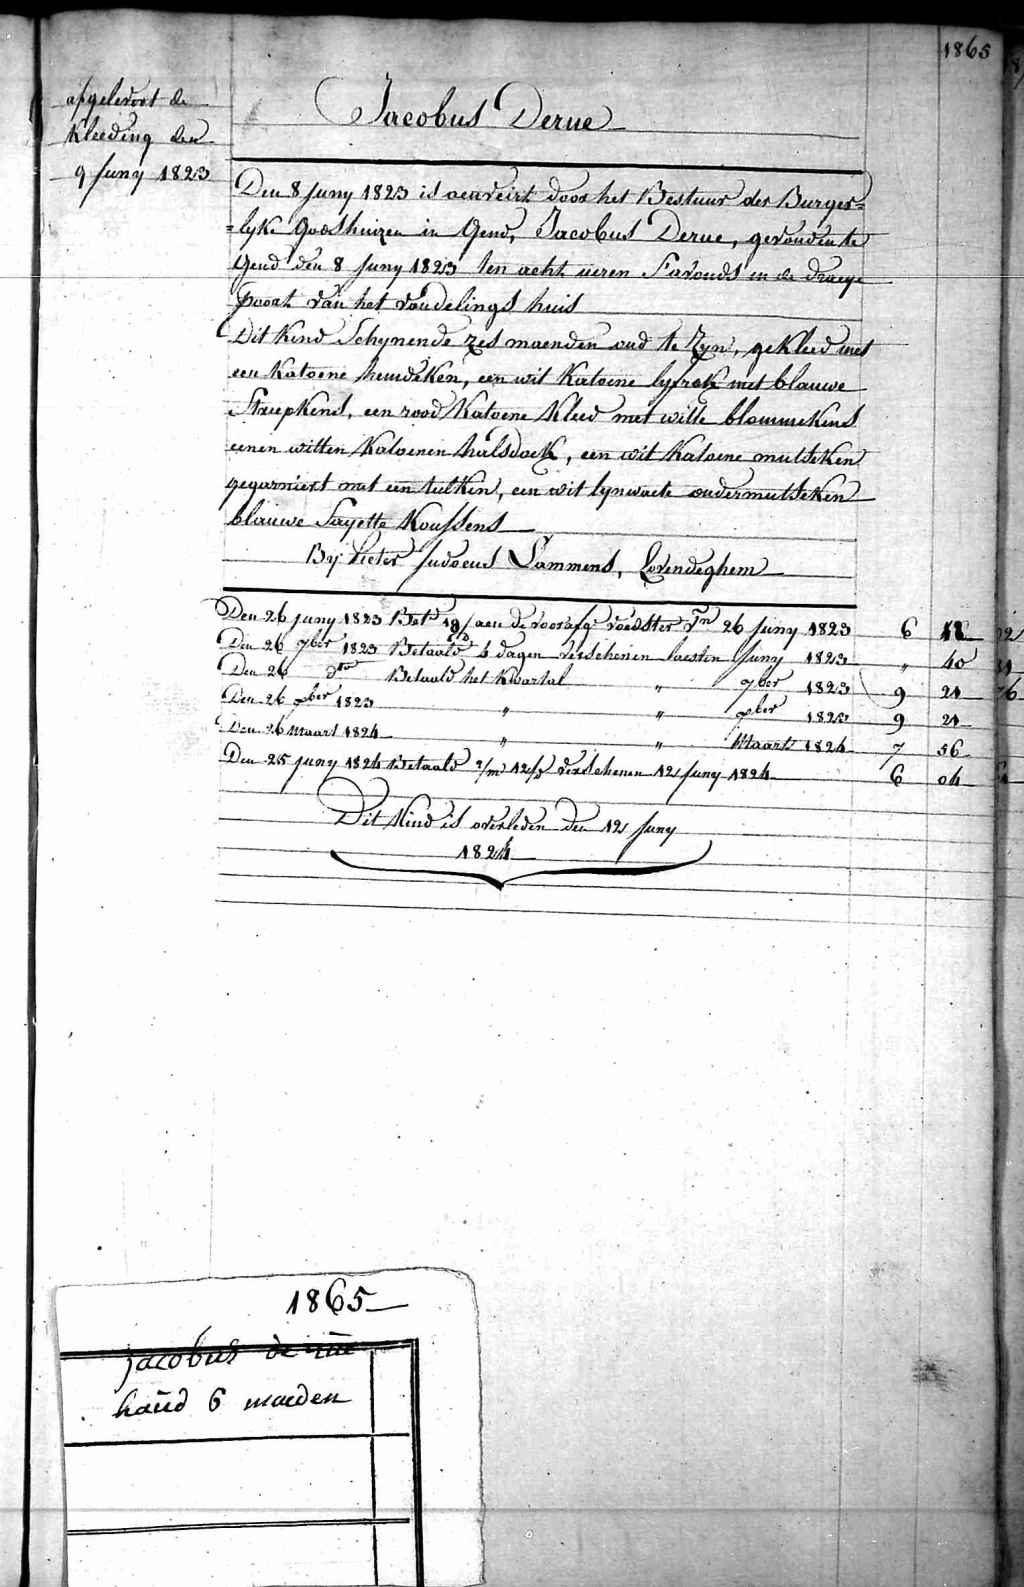 1865
afgelevert de
kleeding den
9 Juny 1823
Jacobus Derue
Den 8 Juny 1823 is aenveirt door het Bestuur der Burger=
=lyke Godshuizen in Gend, Jacobus Derue, gevonden te
Gend den 8 Juny 1823 ten acht ueren s'avonds in de draeye
poort van het vondelings huis
Dit kind schynende zes maenden oud te zyn, gekleed met
een katoene hemdeken, een wit katoene lyfrok met blauwe
streepkens, een rood katoene kleed met witte blommekens
eenen witten katoenen halsdoek, een wit katoene mutseken
gegarniert met een tulken, een wit lynwaete ondermutseken
blauwe sayette koussens
By Pieter Judocus Lammens, Lovendeghem
Den 26 Juny 1823 Bet.d 18/ aen de voorafge voedster 26 Juny 1823 6 18
Den 26 7ber 1823 Betaald 4 dagen verschenen laesten Juny 1823 " 40
Den 26 d.to Betaald het kwartal " 7ber 1823 9 21
Den 26 xber 1823 " " xber 1823 9 21
Den 26 Maart 1824 " " Maart 1824 7 56
Den 25 Juny 1824 Betaald verschenen 12 Juny 1824 6 04
Dit kind is overleden den 12 Juny
1824
1865
jacobus de rue
haud 6 maeden